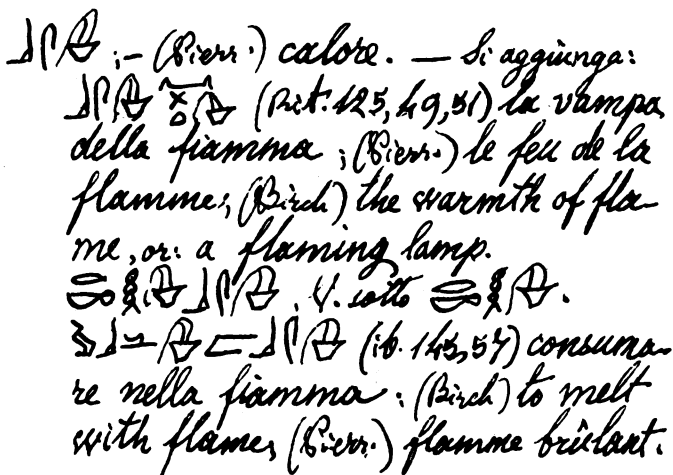 ;– (Pierr.) calore. — Si aggiunga:
(Rit. 125, 49, 51) la vampa
della fiamma ; (Pierr.) le feu de la
flamme; (Birch) the warmth of fla-
me, or: a flaming lamp.
. V. sotto .
(ib. 145,57) consuma-
re nella fiamma : (Birch) to melt
with flame; (Pierr.) flamme brûlant.